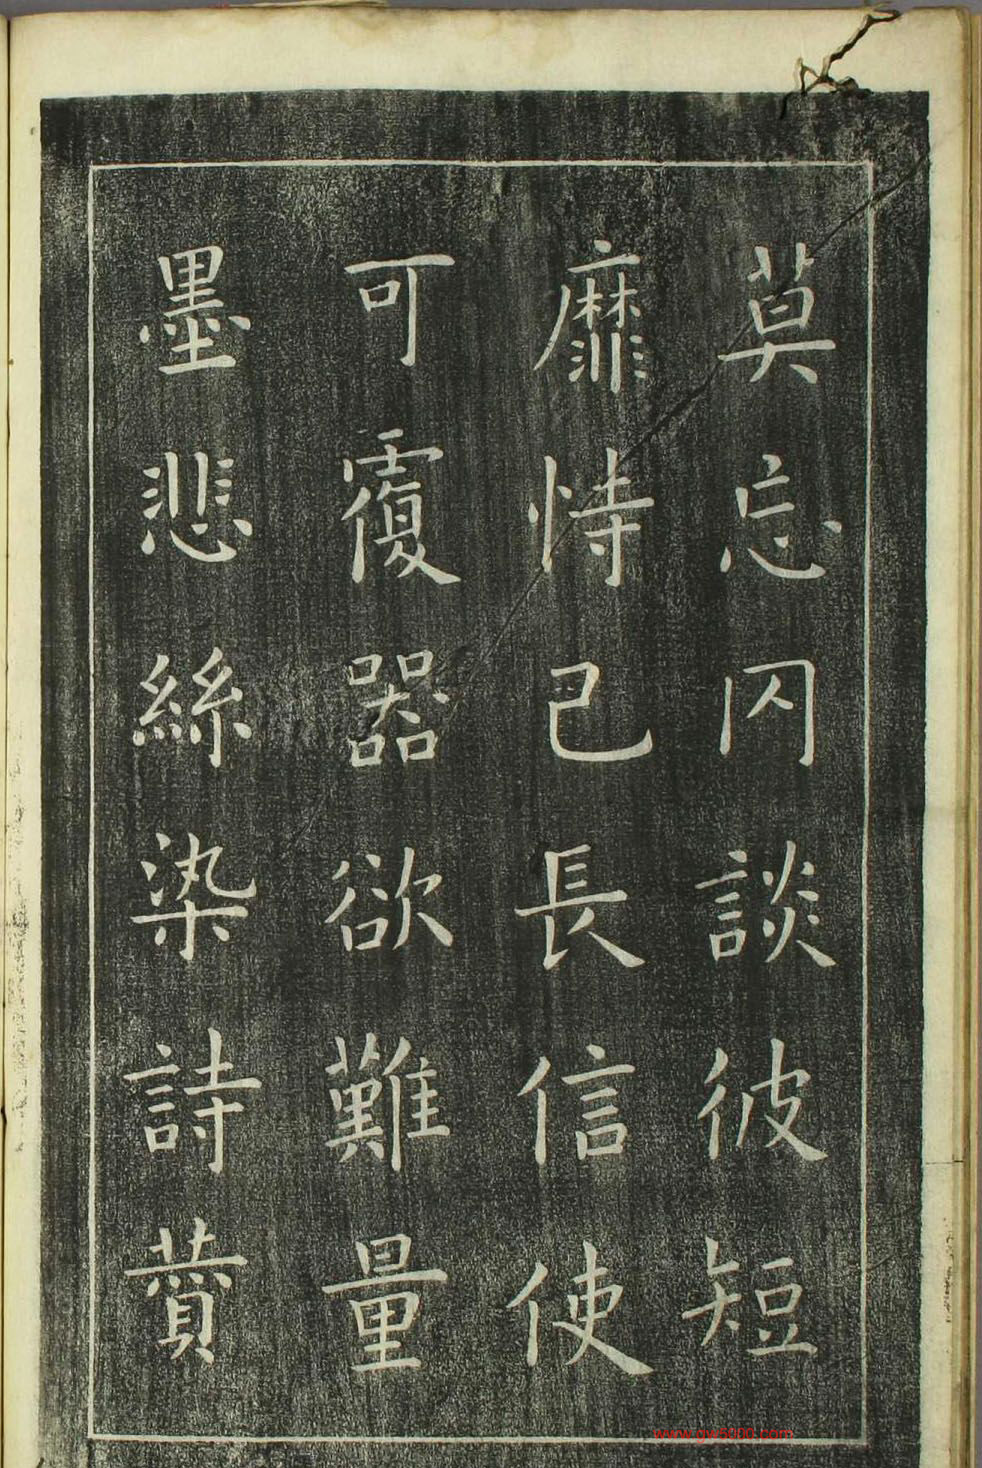 莫忘罔談彼短
靡恃己長信使
可覆器欲難量
墨悲絲染詩讚
www.gw5300.com